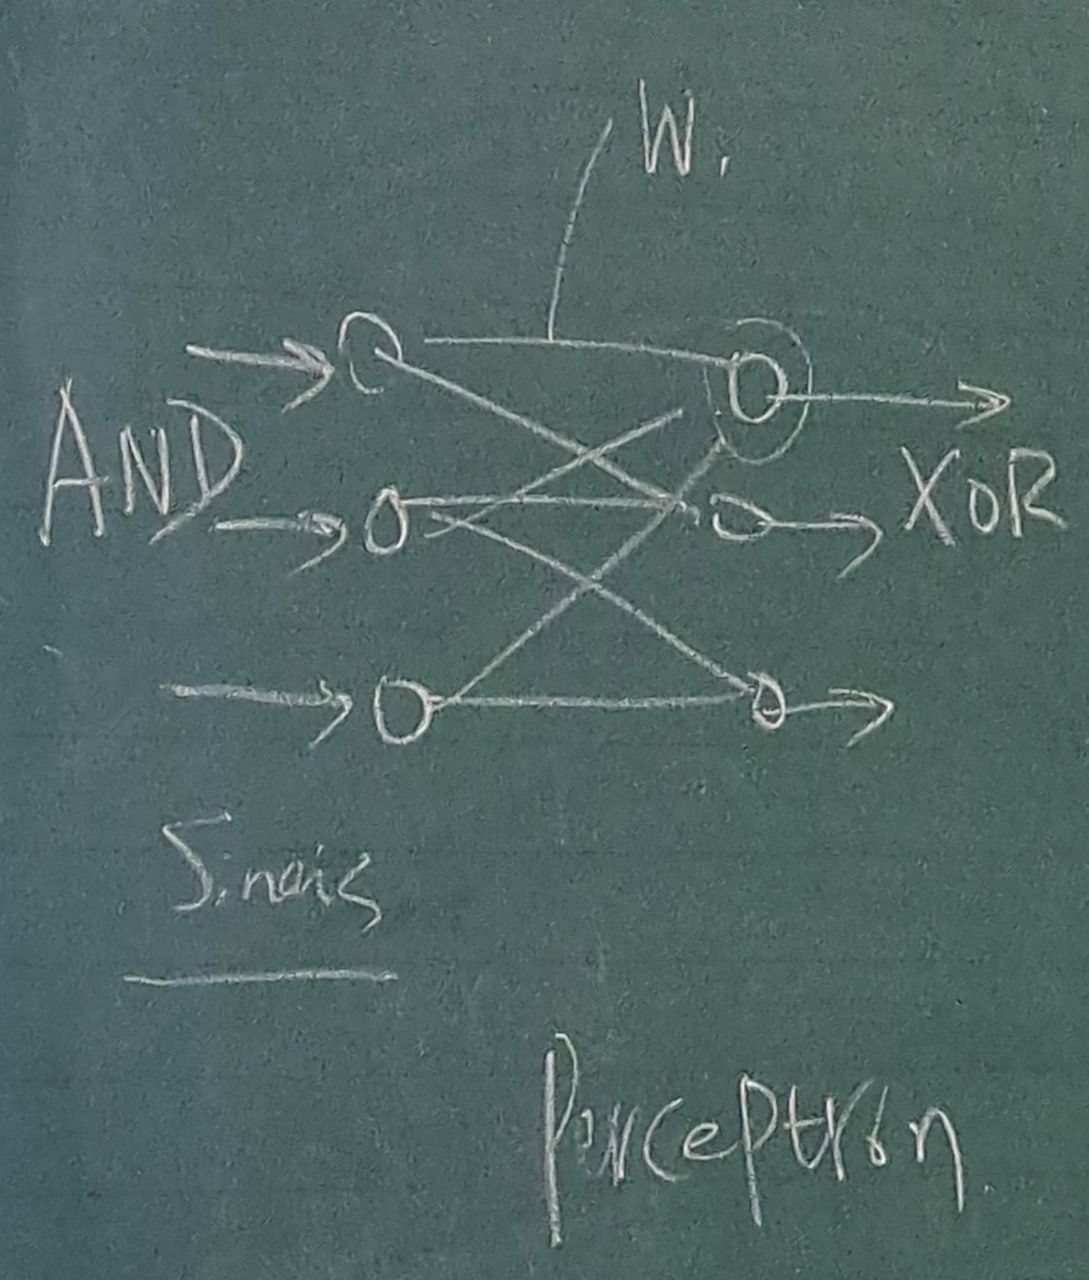 W.
AND
XOR
Sinais
Perceptron